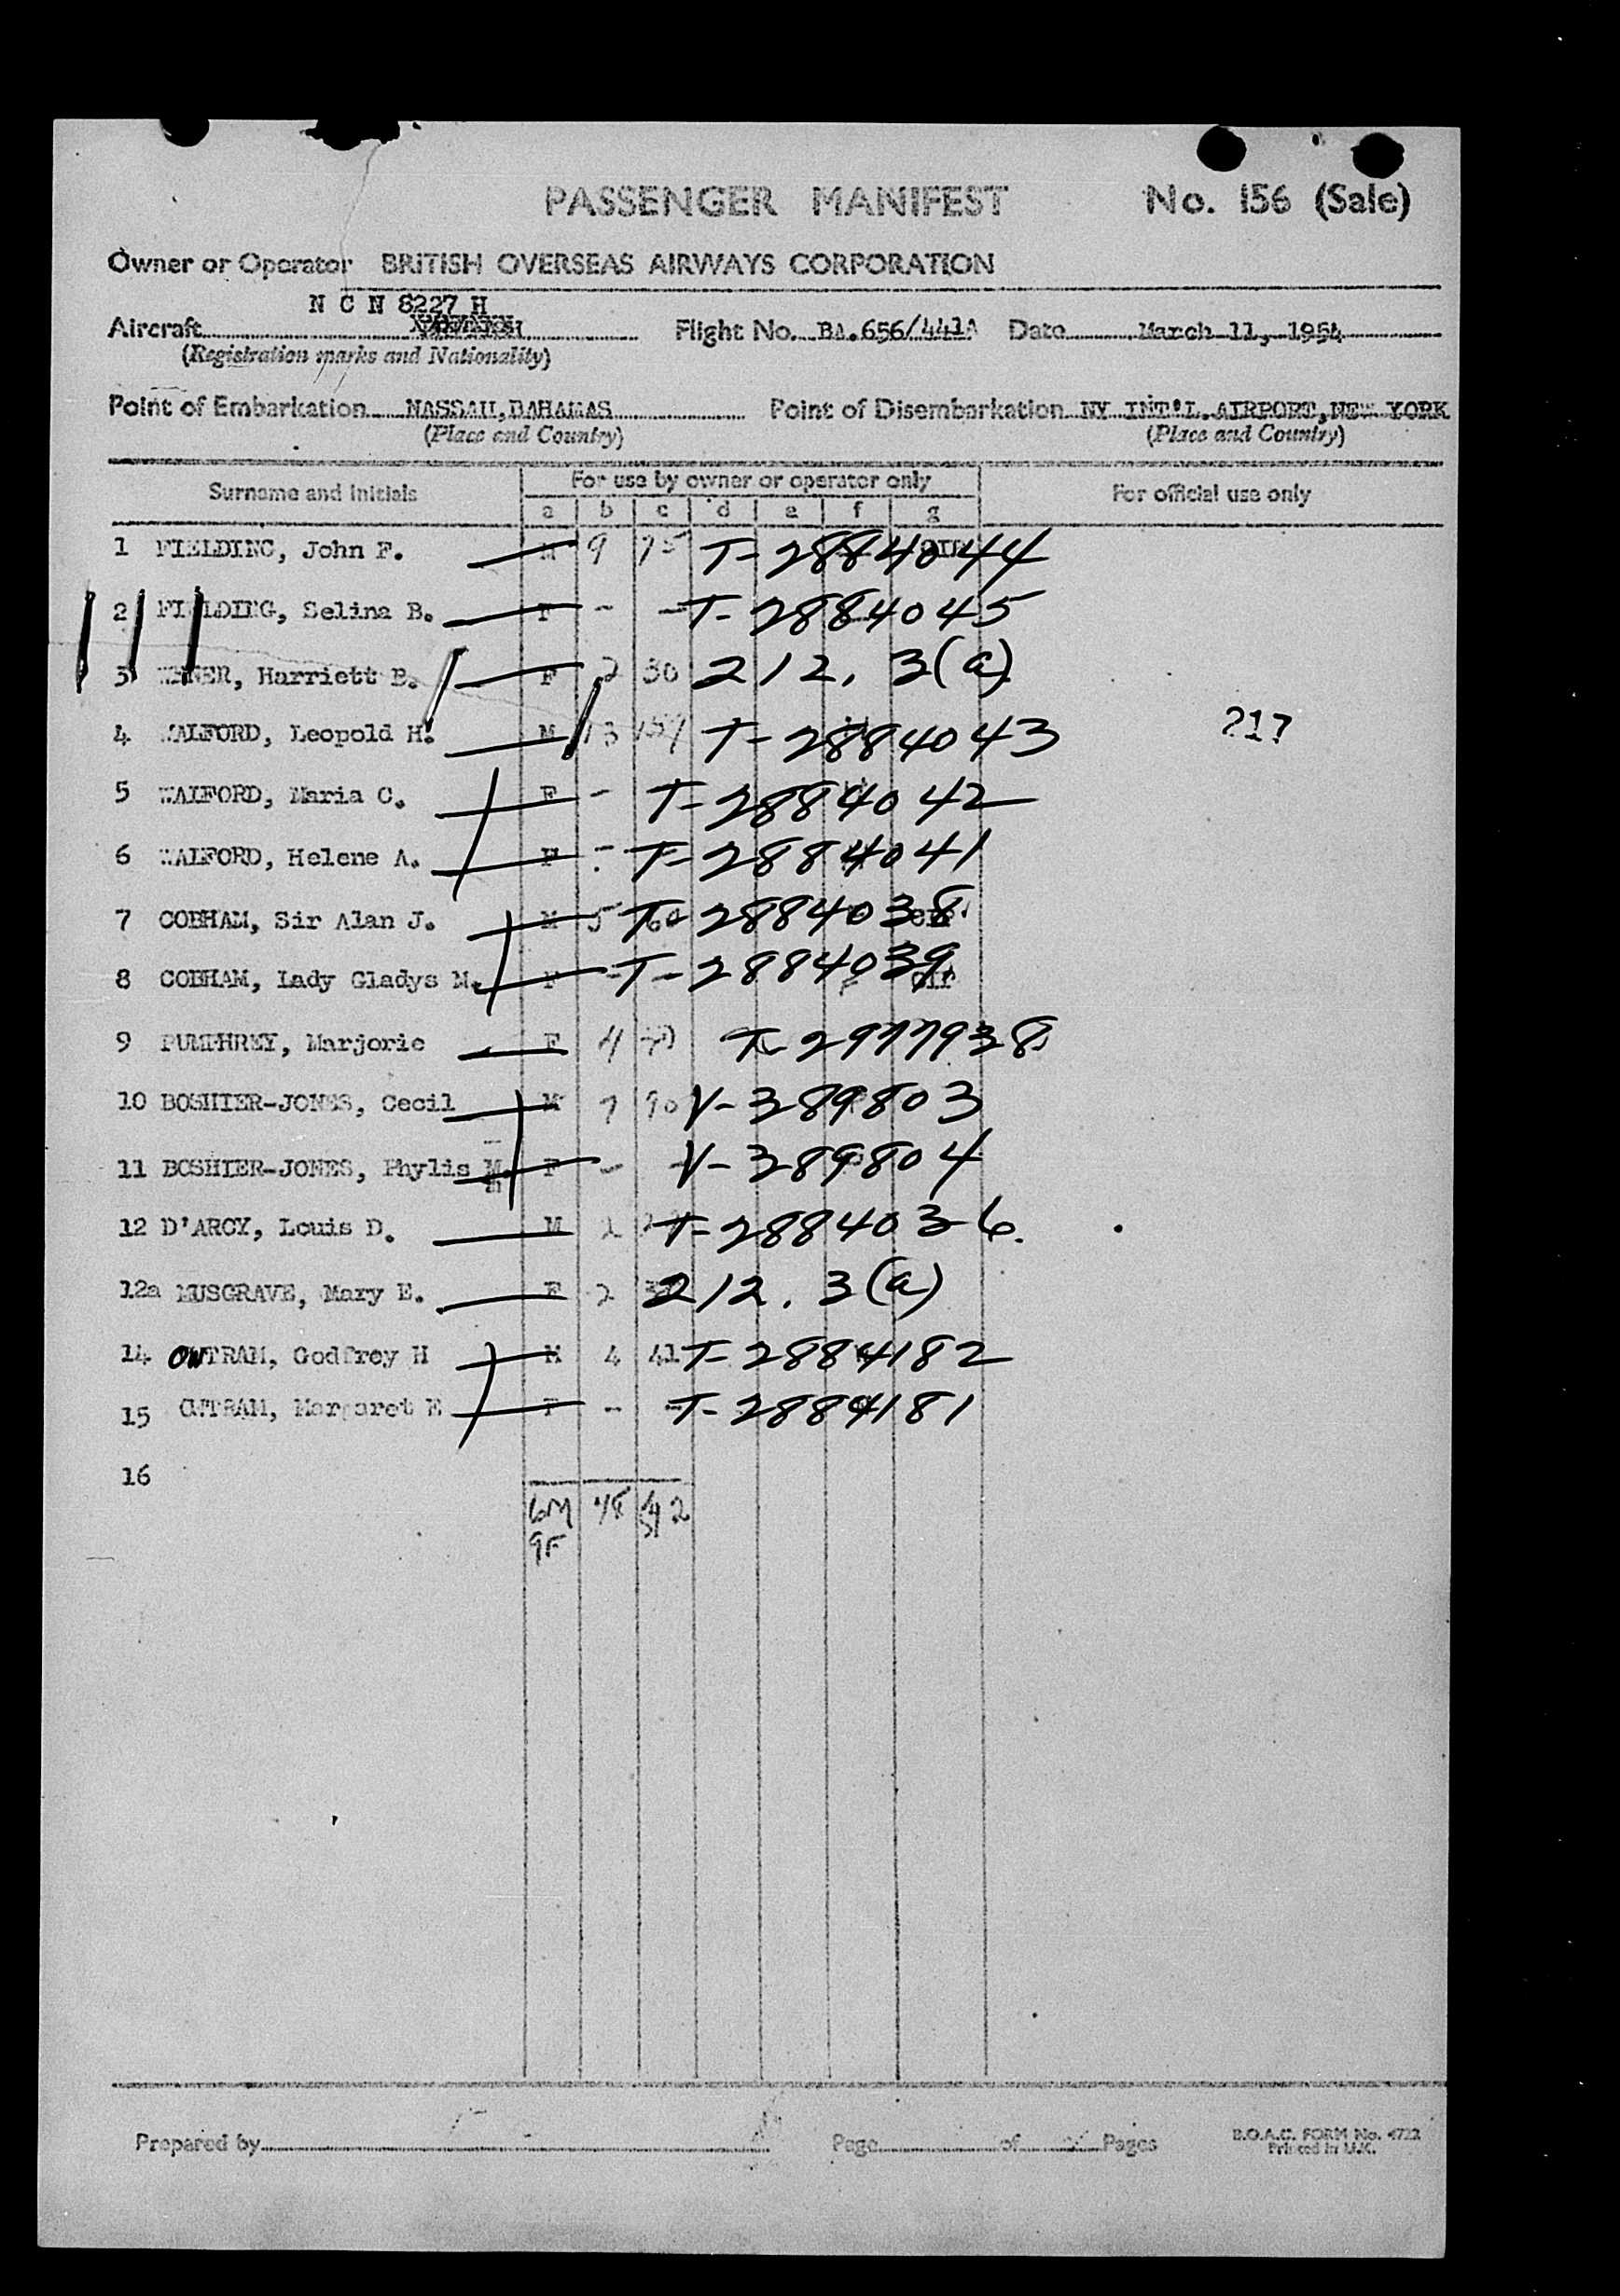 PASSENGER MANIFEST No. 156 (Sale)
Owner or Operator BRITISH OVERSEAS AIRWAYS CORPORATION
N C N 8227 H
Aircraft Flight No. BA.656/441A Date March 11, 1954
(Registration marks and Nationality)
Point of Embarkation NASSAU, BAHAMAS Point of Disembarkation NY INT'L. AIRPORT, NEW YORK
(Place and Country) (Place and Country)
Surname and Initials For use by owner or operator only For official use only
a b c d e f g
1 FIELDING, John F. M 9 75 T-2884044
2 FIELDING, Selina B. F - - T-2884045
3 Harriett B. F 2 30 212. 3(a)
4 WALFORD, Leopold H. M 13 T-2884043 217
5 WALFORD, Maria C. F - T-2884042
6 WALFORD, Helene A. F - T-2884041
7 COBHAM, Sir Alan J. M 5 60 T-2884038
8 COBHAM, Lady Gladys M. F - T-2884039
9 PUMPHREY, Marjorie F 4 T-2977938
10 BOSHIER-JONES, Cecil M 7 90 V-389803
11 BOSHIER-JONES, Phylis M. F - - V-389804
12 D'ARCY, Louis D. M 2 T-2884036.
12a MUSGRAVE, Mary E. F 2 212. 3(a)
14 OWTRAM, Godfrey H M 4 41 T-2884182
15 OWTRAM, Margaret E F - - T-2884181
16
6M
9F
Prepared by Page of Pages B.O.A.C. FORM No. 4722
Printed in U.K.